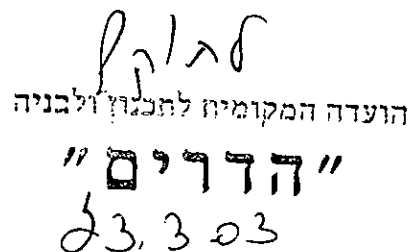 לתוקף
הועדה המקומית לתכנון ולבניה
"הדרים"
23.3.03